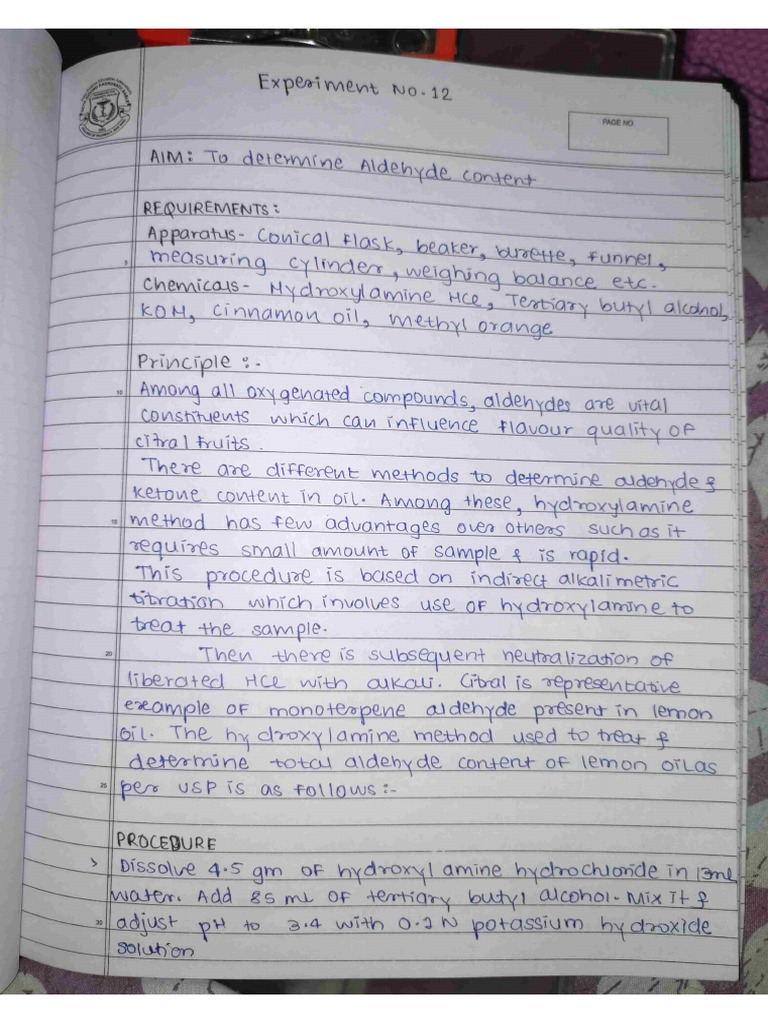 Experiment No. 12
PAGE NO.
AIM: To determine Aldehyde content
REQUIREMENTS:
Apparatus- Conical flask, beaker, burette, funnel,
5 measuring cylinder, weighing balance etc.
Chemicals- Hydroxylamine HCl, Tertiary butyl alcohol,
KOH, Cinnamon oil, methyl orange
Principle :-
10 Among all oxygenated compounds, aldehydes are vital
constituents which can influence flavour quality of
citral fruits.
There are different methods to determine aldehyde &
ketone content in oil. Among these, hydroxylamine
15 method has few advantages over others such as it
requires small amount of sample & is rapid.
This procedure is based on indirect alkalimetric
titration which involves use of hydroxylamine to
treat the sample.
20 Then there is subsequent neutralization of
liberated HCl with alkali. Citral is representative
example of monoterpene aldehyde present in lemon
oil. The hydroxylamine method used to treat &
determine total aldehyde content of lemon oil as
25 per USP is as follows:-
PROCEDURE
> Dissolve 4.5 gm of hydroxyl amine hydrochloride in 13ml
water. Add 85 ml of tertiary butyl alcohol. Mix it &
30 adjust pH to 3.4 with 0.2 N potassium hydroxide
solution